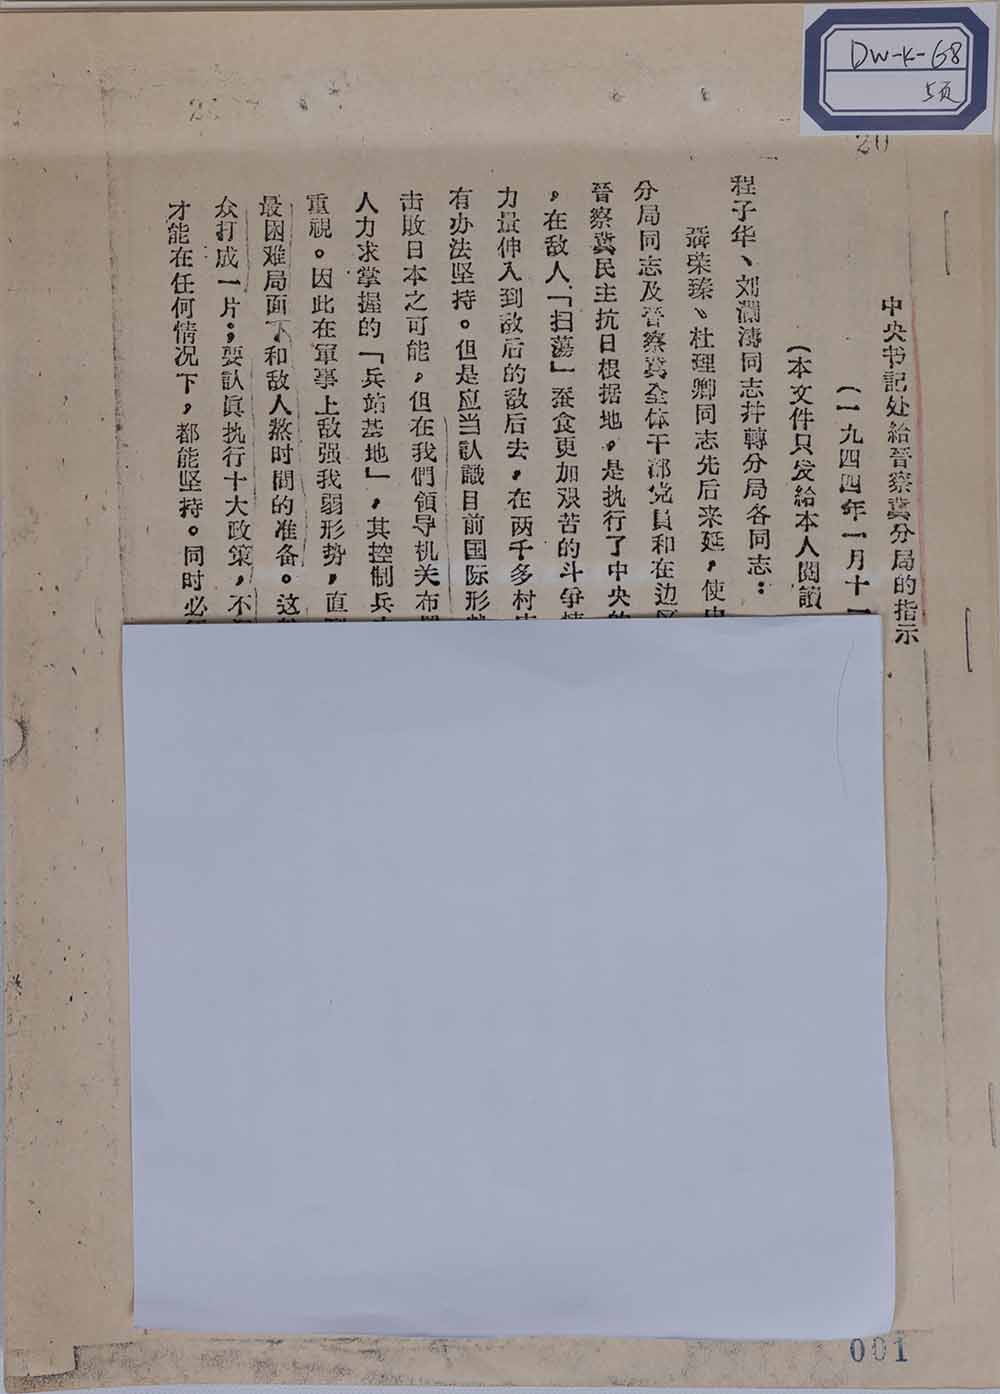 DW-K-68
5页
20
中央书記处給晉察冀分局的指示
(一九四四年一月十
(本文件只发給本人閱讀
程子华、刘瀾濤同志幷轉分局各同志：
聂荣臻、杜理卿同志先后来延，使中
分局同志及晉察冀全体干部党員和在边区
晉察冀民主抗日根据地，是执行了中央的
，在敌人「扫蕩」蚕食更加艰苦的斗爭
力量伸入到敌后的敌后去，在两千多村
有办法坚持。但是应当認識目前国际形
击敗日本之可能，但在我們领导机关布
人力求掌握的「兵站基地」，其控制兵
重視。因此在軍事上敌强我弱形势，直
最困难局面下和敌人熬时間的准备。这
众打成一片；要認眞执行十大政策，不
才能在任何情况下，都能坚持。同时必
001